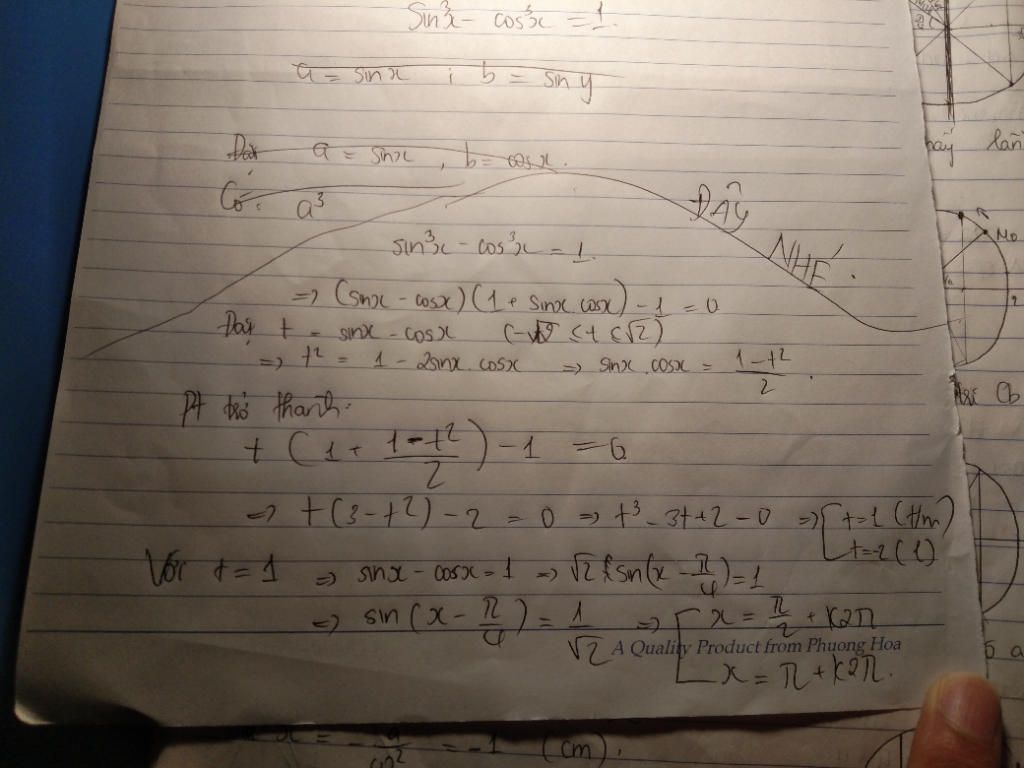 Sin³x - cos³x = 1.
a = sinx ; b = sin y
Đặt a = sinx , b = cosx.
Có: a³
ĐÂY
NHÉ.
sin³x - cos³x = 1.
=> (sinx - cosx)(1 + sinx.cosx) - 1 = 0
Đặt t = sinx - cosx (-√2 ≤ t ≤ √2)
=> t² = 1 - 2sinx.cosx => sinx.cosx = (1-t²)/2.
Pt trở thành:
t (1 + (1-t²)/2) - 1 = 0
=> t(3-t²) - 2 = 0 => t³ - 3t + 2 = 0 => [t=1 (t/m)
t=-2 (l)
Với t = 1 => sinx - cosx = 1 => √2 sin(x - π/4) = 1
=> sin(x - π/4) = 1/√2 => [x = π/2 + k2π
A Quality Product from Phuong Hoa
x = π + k2π.
= -1 (cm).
M₀